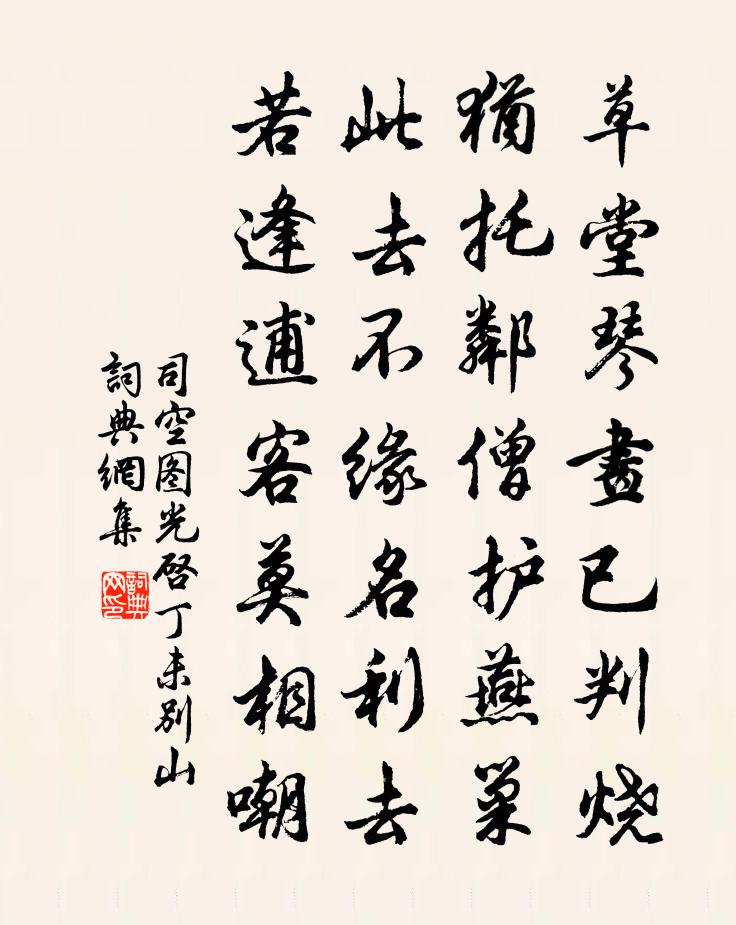 草堂琴畫已判烧
猶托鄰僧护燕巢
此去不缘名利去
若逢逋客莫相嘲
司空图光启丁未别山
詞典網集
詞典网印